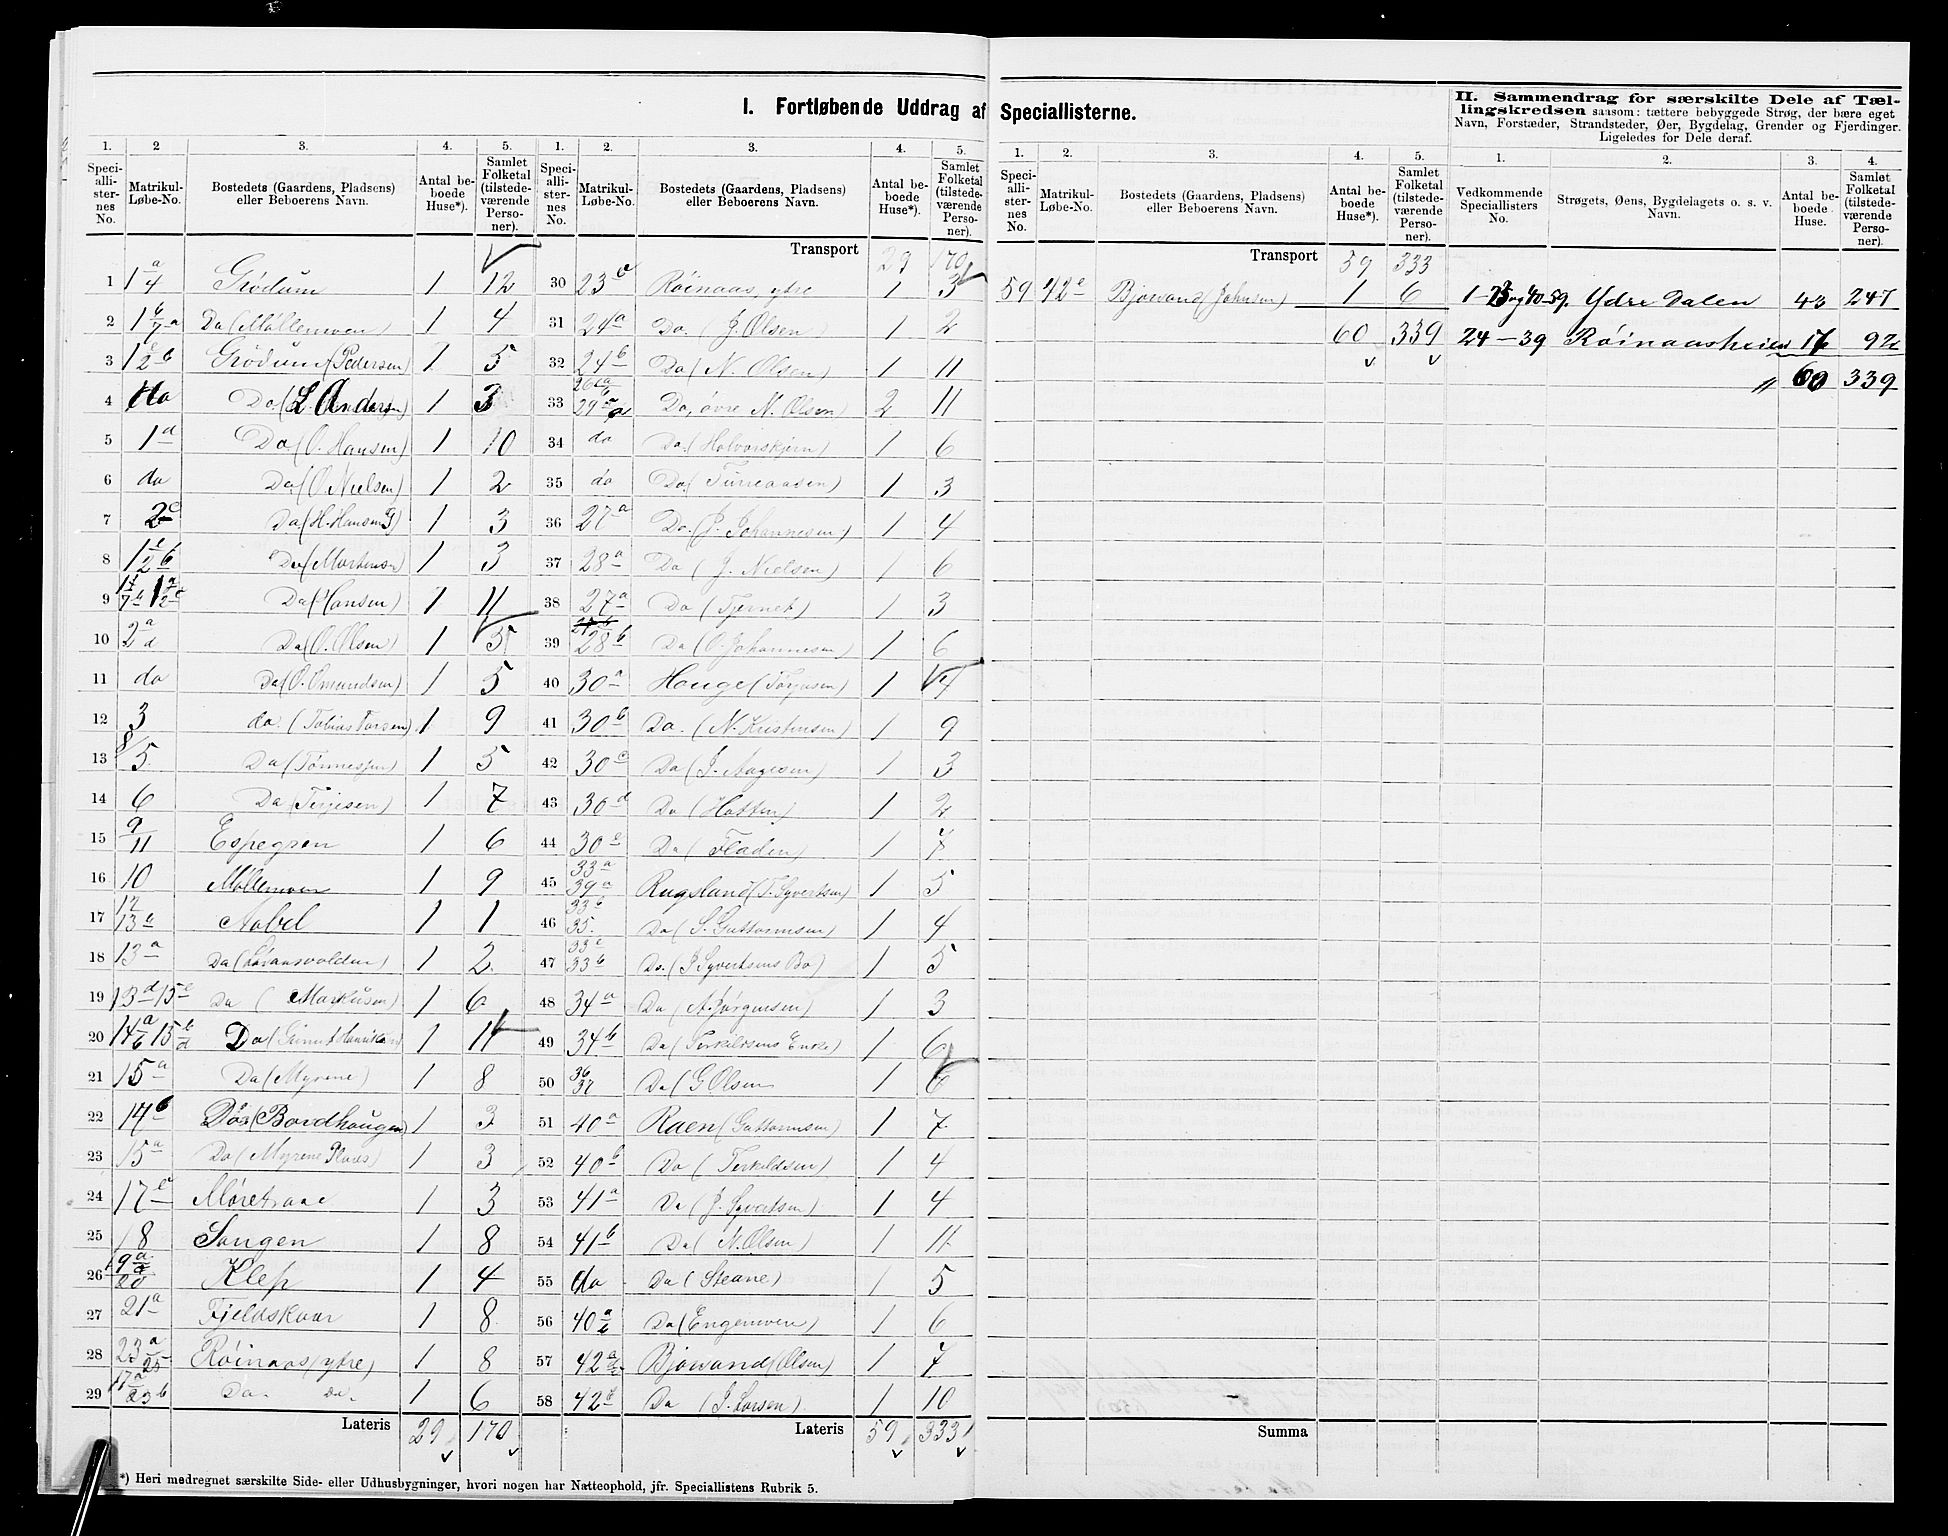 I. Fortløbende Uddrag af Speciallisterne.
II. Sammendrag for særskilte Dele af Tællingskredsen saasom: tættere bebyggede Strøg, der bære eget
Navn, Forstæder, Strandsteder, Øer, Bygdelag, Grender og Fjerdinger.
Ligeledes for Dele deraf.
1. 2 3. 4. 5.
Speciallisternes No. Matrikul-Løbe-No. Bostedets (Gaardens, Pladsens) eller Beboerens Navn. Antal beboede Huse*). Samlet Folketal (tilstedeværende Personer).
1 1 a 4 Grödum 1 12
2 Da (Möllemoen) 1 4
3 Grödum (Pedersen) 1 5
4 Da (L. Anders) 1 3
5 1 d Da (O. Hansen) 1 10
6 do Da (O Nielsen) 1 2
7 2 c Da (H. Hansen) 1 3
8 Da (Mortensen) 1 3
9 Da (Hansen) 1 11
10 2 a d Da (O. Olsen) 1 3
11 do Da (O. Omundsen) 1 5
12 3 do (Tobias Tarsen) 1 9
13 5 Da (Tönnesen) 1 5
14 6 Da (Terjesen) 1 7
15 9 11 Espegren 1 6
16 10 Möllemoen 1 9
17 Nabel 1 1
18 13 a Da 1 2
19 Da (Markusen) 1 6
20 Da 1 11
21 15 a Da (Myrene) 1 8
22 14 b Do (Bordhaugen) 1 3
23 15 a Da (Myrene Plads) 1 3
24 17 Möretraae 1 3
25 18 Songen 1 8
26 Klep 1 4
27 21 a Fjeldskaar 1 8
28 23 a 25 Röinaas (ytre) 1 8
29 Da Da 1 6
Lateris 29 170
1. 2. 3. 4. 5.
Speciallisternes No. Matrikul-Løbe-No. Bostedets (Gaardens, Pladsens) eller Beboerens Navn. Antal beboede Huse*). Samlet Folketal (tilstedeværende Personer).
Transport 29 170
30 23 Röinaas, ytre 1 3
31 24 a Do. (J. Olsen) 1 2
32 24 b Da (N. Olsen) 1 11
33 Da, övre N. Olsen) 2 11
34 do Da. (Halvorskjern) 1 6
35 do Da (Turreaasen) 1 3
36 27 a Da. (J. Johannesen) 1 4
37 28 a Da (J. Nielsen) 1 6
38 27 a Da (Tjernet) 1 3
39 28 b Da (O. Johannesen) 1 6
40 30 a Houge (Törjusen) 1 4
41 30 b Da. (N. Kristensen) 1 9
42 30 c Da (J. Aagesen) 1 3
43 30 d Da (Hatten) 1 2
44 30 e Da (Fladen) 1 7
45 33 a 39 a Rugsland (T. Syvertsen) 1 5
46 33 b 35. Da (S. Guttormsen) 1 4
47 33 c 33 b Do. (J Syvertsens Bo) 1 5
48 34 a Da (A. Jörgensen) 1 3
49 34 b Da (Terkeldsens Enke) 1 6
50 36 37 Da (G Olsen 1 6
51 40 a Raen (Guttormsen) 1 7
52 40 b Da (Terkeldsen) 1 4
53 41 a Da (J. Syvertsen) 1 4
54 41 b Da (N. Olsen) 1 11
55 do Da (Steane) 1 5
56 40 a Da (Engemoen) 1 6
57 42 a Bjorvand (Olsen) 1 7
58 42 Da (J. Larsen). 1 10
Lateris 59 333
1. 2. 3. 4. 5.
Speciallisternes No. Matrikul-Løbe-No. Bostedets (Gaardens, Pladsens) eller Beboerens Navn. Antal beboede Huse*). Samlet Folketal (tilstedeværende Personer).
Transport 59 333
59 42 e Bjorvand (Johnsen) 1 6
60 339
Summa
1. 2. 3. 4.
Vedkommende Speciallisters No. Strøgets, Øens, Bygdelagets o. s. v. Navn. Antal beboede Huse. Samlet Folketal (tilstedeværende Personer).
1-23 og 40-59. Ydre Dalen 43 247
24-39 Röinaasheien 17 92
" 60 339
*) Heri medregnet særskilte Side- eller Udhusbygninger, hvori nogen har Natteophold, jfr. Speciallistens Rubrik 5.